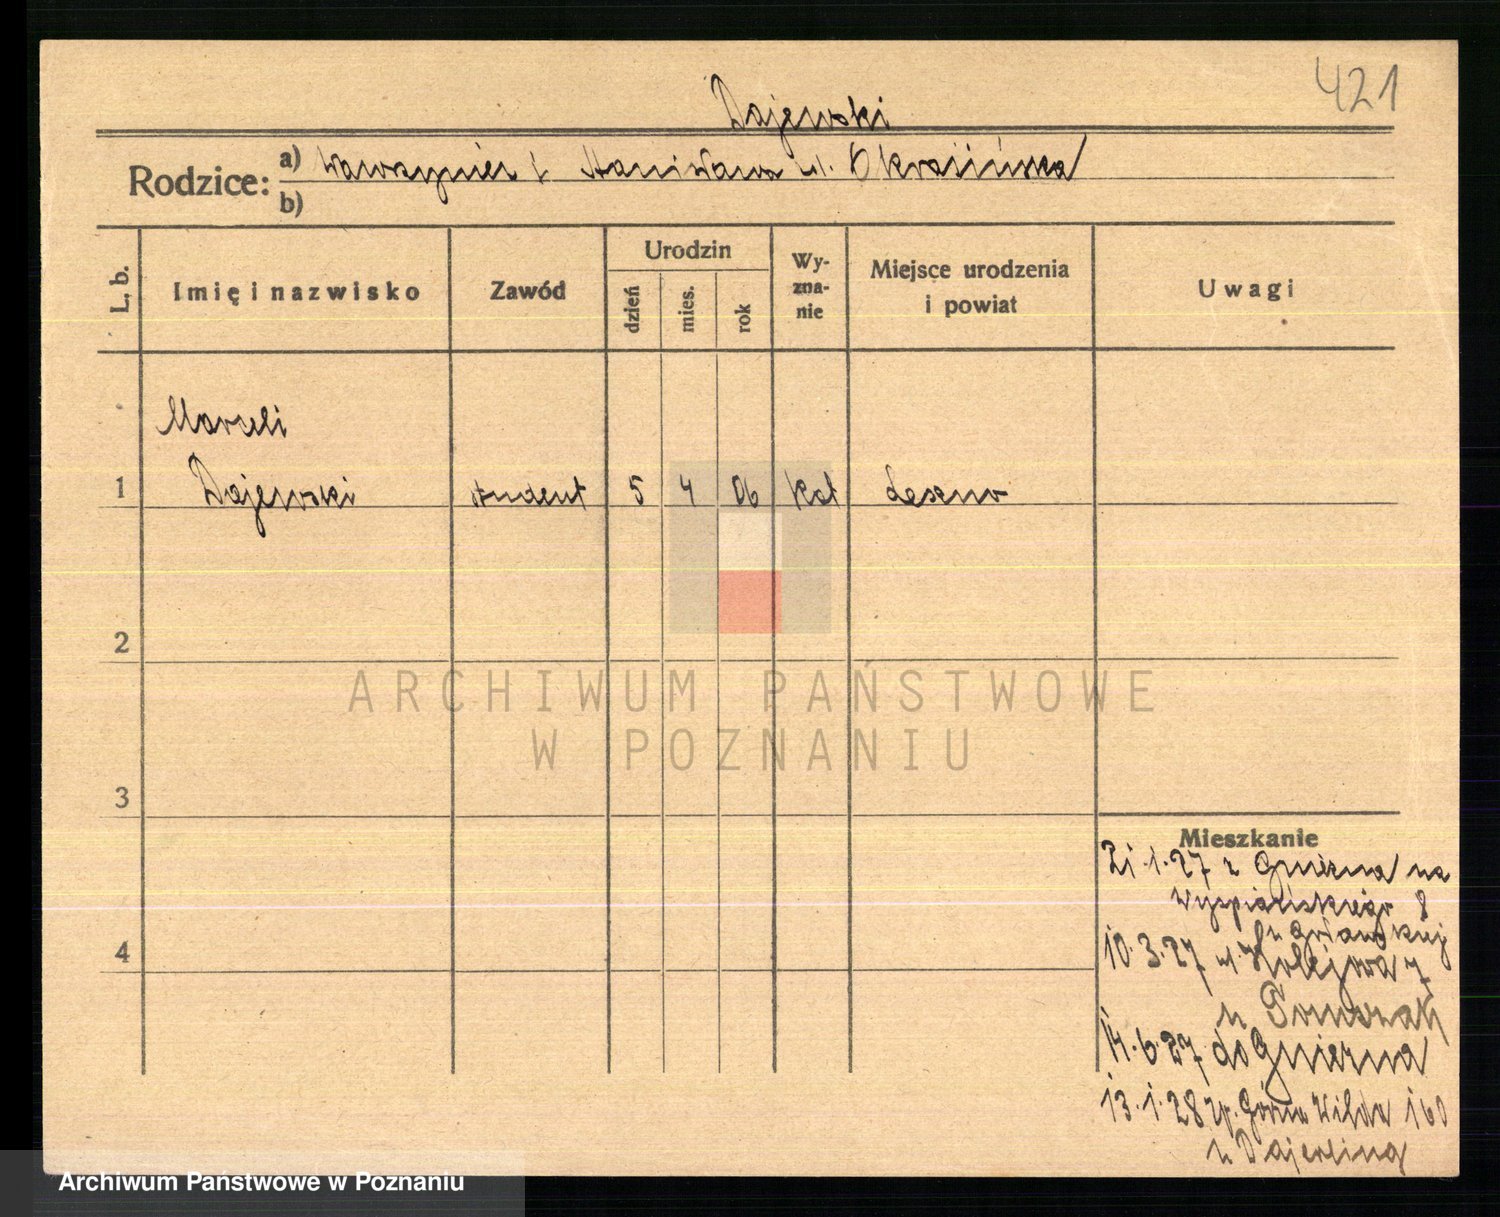 421
Dajewski
Rodzice:
a) Wawrzyniec i Stanisława Okrasińska
b)
L. b.
Imię i nazwisko
Zawód
Urodzin
dzień
mies.
rok
Wy-
zna-
nie
Miejsce urodzenia
i powiat
Uwagi
Marceli
1 Dajewski student 5 4 06 kat Leszno
2
ARCHIWUM PAŃSTWOWE
W POZNANIU
3
Mieszkanie
21.1.27 z Gniezna na
Wyspiańskiego 8
10.3.27 ul. Kolejowa 7
14.6.27 do Gniezna
13.1.28 Górna Wilda 160
4
Archiwum Państwowe w Poznaniu